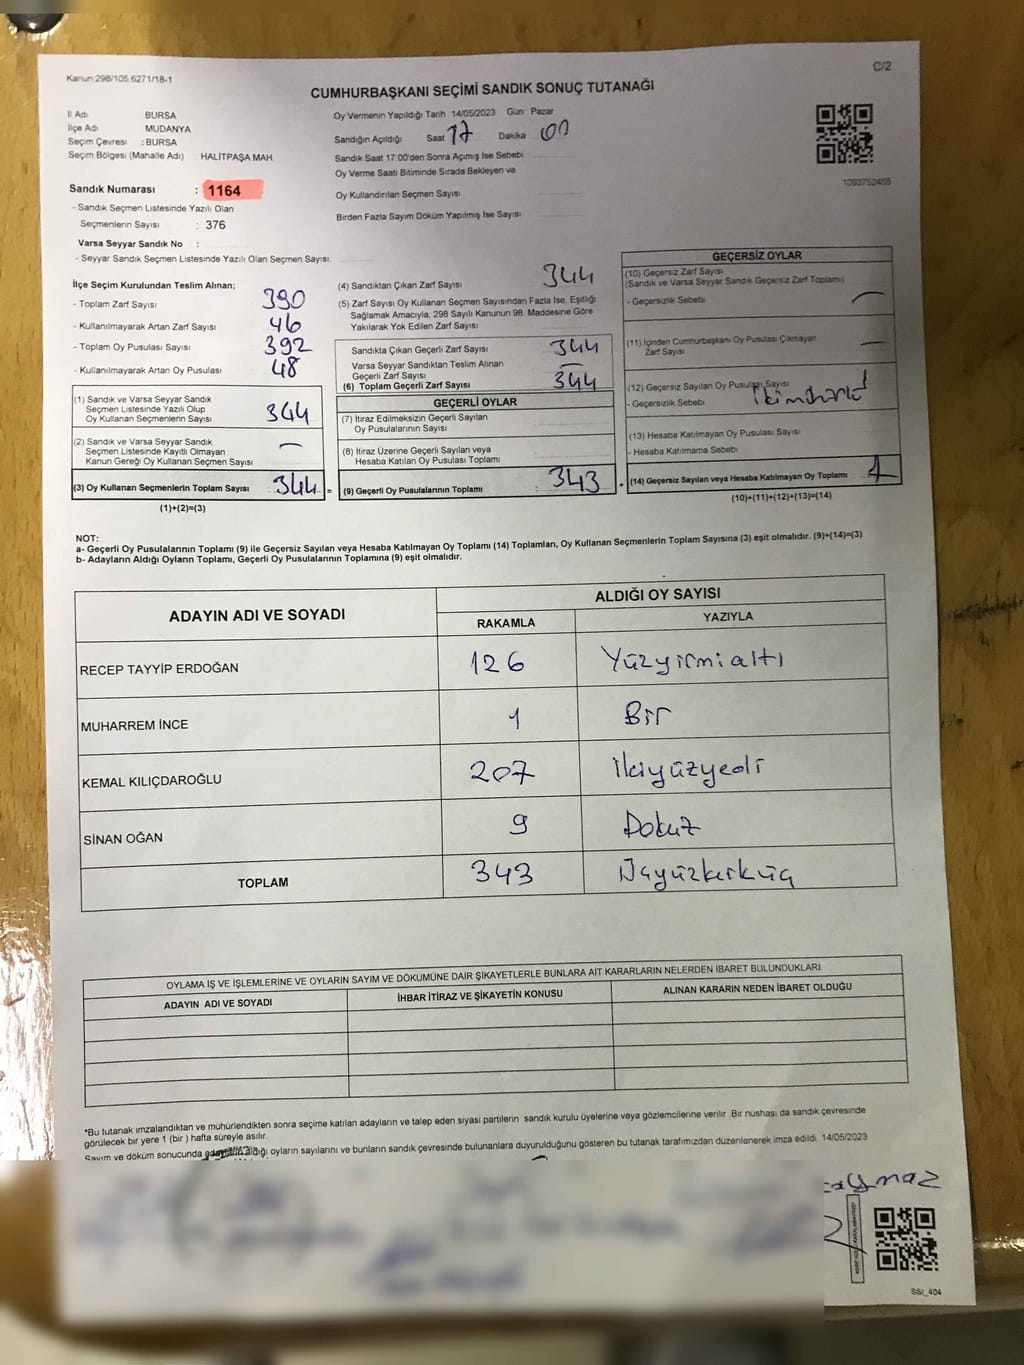 Kanun:298/105.6271/18-1
C/2
CUMHURBAŞKANI SEÇİMİ SANDIK SONUÇ TUTANAĞI
İl Adı BURSA
İlçe Adı MUDANYA
Seçim Çevresi : BURSA
Seçim Bölgesi (Mahalle Adı) HALİTPAŞA MAH.
Sandık Numarası : 1164
- Sandık Seçmen Listesinde Yazılı Olan
Seçmenlerin Sayısı : 376
Varsa Seyyar Sandık No :
- Seyyar Sandık Seçmen Listesinde Yazılı Olan Seçmen Sayısı:
Oy Vermenin Yapıldığı Tarih 14/05/2023 Gün Pazar
Sandığın Açıldığı Saat 17 Dakika 00
Sandık Saat 17.00'den Sonra Açımış İse Sebebi
Oy Verme Saati Bitiminde Sırada Bekleyen ve
Oy Kullandırılan Seçmen Sayısı
Birden Fazla Sayım Döküm Yapılmış İse Sayısı
1093752455
İlçe Seçim Kurulundan Teslim Alınan;
- Toplam Zarf Sayısı 390
- Kullanılmayarak Artan Zarf Sayısı 46
- Toplam Oy Pusulası Sayısı 392
- Kullanılmayarak Artan Oy Pusulası 48
(1) Sandık ve Varsa Seyyar Sandık
Seçmen Listesinde Yazılı Olup
Oy Kullanan Seçmenlerin Sayısı 344
(2) Sandık ve Varsa Seyyar Sandık
Seçmen Listesinde Kayıtlı Olmayan
Kanun Gereği Oy Kullanan Seçmen Sayısı —
(3) Oy Kullanan Seçmenlerin Toplam Sayısı 344 =
(1)+(2)=(3)
(4) Sandıktan Çıkan Zarf Sayısı 344
(5) Zarf Sayısı Oy Kullanan Seçmen Sayısından Fazla İse, Eşitliği
Sağlamak Amacıyla; 298 Sayılı Kanunun 98. Maddesine Göre
Yakılarak Yok Edilen Zarf Sayısı
Sandıkta Çıkan Geçerli Zarf Sayısı 344
Varsa Seyyar Sandıktan Teslim Alınan
Geçerli Zarf Sayısı —
(6) Toplam Geçerli Zarf Sayısı 344
GEÇERLİ OYLAR
(7) İtiraz Edilmeksizin Geçerli Sayılan
Oy Pusulalarının Sayısı
(8) İtiraz Üzerine Geçerli Sayılan veya
Hesaba Katılan Oy Pusulası Toplamı
(9) Geçerli Oy Pusulalarının Toplamı : 343 +
GEÇERSİZ OYLAR
(10) Geçersiz Zarf Sayısı
(Sandık ve Varsa Seyyar Sandık Geçersiz Zarf Toplamı)
- Geçersizlik Sebebi —
(11) İçinden Cumhurbaşkanı Oy Pusulası Çıkmayan
Zarf Sayısı —
(12) Geçersiz Sayılan Oy Pusulası Sayısı 1
- Geçersizlik Sebebi
(13) Hesaba Katılmayan Oy Pusulası Sayısı
- Hesaba Katılmama Sebebi
(14) Geçersiz Sayılan veya Hesaba Katılmayan Oy Toplamı 1
(10)+(11)+(12)+(13)=(14)
NOT:
a- Geçerli Oy Pusulalarının Toplamı (9) ile Geçersiz Sayılan veya Hesaba Katılmayan Oy Toplamı (14) Toplamları, Oy Kullanan Seçmenlerin Toplam Sayısına (3) eşit olmalıdır. (9)+(14)=(3)
b- Adayların Aldığı Oyların Toplamı, Geçerli Oy Pusulalarının Toplamına (9) eşit olmalıdır.
ADAYIN ADI VE SOYADI ALDIĞI OY SAYISI
RAKAMLA YAZIYLA
RECEP TAYYİP ERDOĞAN 126 Yüzyirmialtı
MUHARREM İNCE 1 Bir
KEMAL KILIÇDAROĞLU 207 İkiyüzyedi
SİNAN OĞAN 9 Dokuz
TOPLAM 343 Üçyüzkırküç
OYLAMA İŞ VE İŞLEMLERİNE VE OYLARIN SAYIM VE DÖKÜMÜNE DAİR ŞİKAYETLERLE BUNLARA AİT KARARLARIN NELERDEN İBARET BULUNDUKLARI
ADAYIN ADI VE SOYADI İHBAR İTİRAZ VE ŞİKAYETİN KONUSU ALINAN KARARIN NEDEN İBARET OLDUĞU
*Bu tutanak imzalandıktan ve mühürlendikten sonra seçime katılan adayların ve talep eden siyasi partilerin sandık kurulu üyelerine veya gözlemcilerine verilir. Bir nüshası da sandık çevresinde
görülecek bir yere 1 (bir) hafta süreyle asılır.
Sayım ve döküm sonucunda adayların aldığı oyların sayılarını ve bunların sandık çevresinde bulunanlara duyurulduğunu gösteren bu tutanak tarafımızdan düzenlenerek imza edildi. 14/05/2023
SSI_404